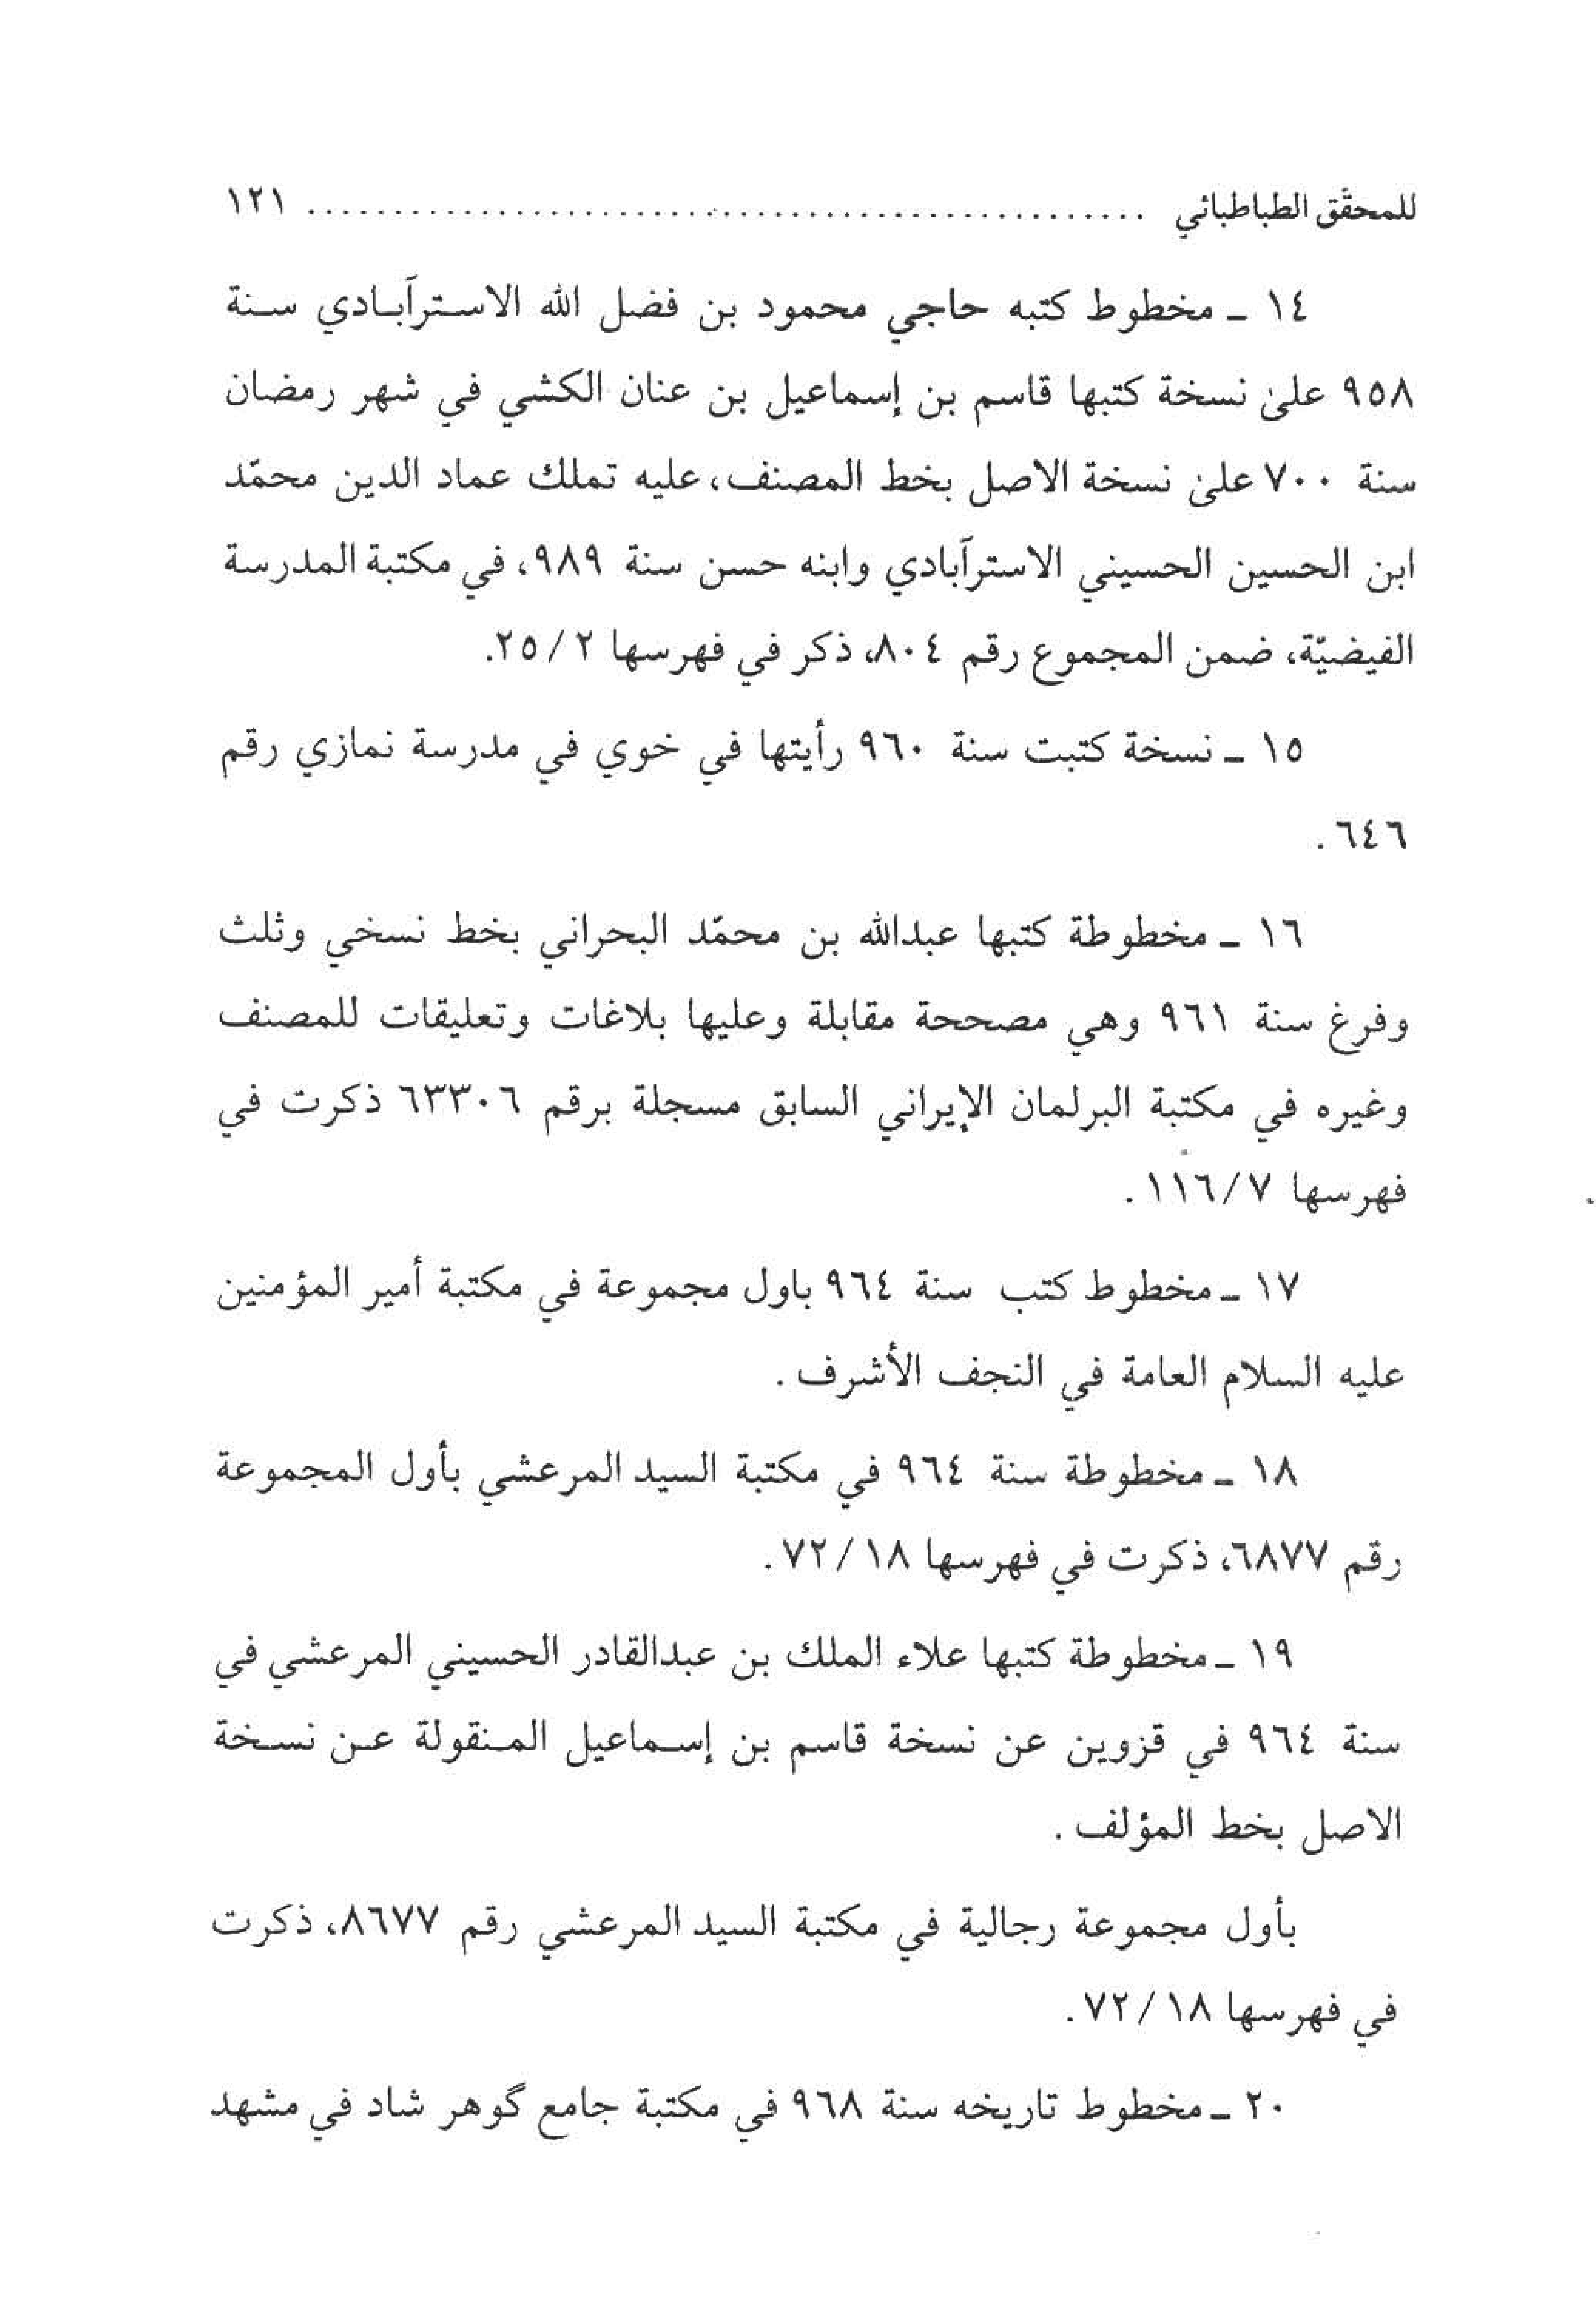 للمحقّق الطباطبائي ................................................ ١٢١
١٤ ـ مخطوط كتبه حاجي محمود بن فضل الله الاسترآبادي سنة
٩٥٨ علىٰ نسخة كتبها قاسم بن إسماعيل بن عنان الكشي في شهر رمضان
سنة ٧٠٠ علىٰ نسخة الاصل بخط المصنف، عليه تملك عماد الدين محمّد
ابن الحسين الحسيني الاسترآبادي وابنه حسن سنة ٩٨٩، في مكتبة المدرسة
الفيضيّة، ضمن المجموع رقم ٨٠٤، ذكر في فهرسها ٢ / ٢٥.
١٥ ـ نسخة كتبت سنة ٩٦٠ رأيتها في خوي في مدرسة نمازي رقم
٦٤٦ .
١٦ ـ مخطوطة كتبها عبدالله بن محمّد البحراني بخط نسخي وثلث
وفرغ سنة ٩٦١ وهي مصححة مقابلة وعليها بلاغات وتعليقات للمصنف
وغيره في مكتبة البرلمان الإيراني السابق مسجلة برقم ٦٣٣٠٦ ذكرت في
فهرسها ٧ /١١٦ .
١٧ ـ مخطوط كتب سنة ٩٦٤ باول مجموعة في مكتبة أمير المؤمنين
عليه السلام العامة في النجف الأشرف .
١٨ ـ مخطوطة سنة ٩٦٤ في مكتبة السيد المرعشي بأول المجموعة
رقم ٦٨٧٧، ذكرت في فهرسها ١٨ / ٧٢ .
١٩ ـ مخطوطة كتبها علاء الملك بن عبدالقادر الحسيني المرعشي في
سنة ٩٦٤ في قزوين عن نسخة قاسم بن إسماعيل المنقولة عن نسخة
الاصل بخط المؤلف .
بأول مجموعة رجالية في مكتبة السيد المرعشي رقم ٨٦٧٧، ذكرت
في فهرسها ١٨ / ٧٢ .
٢٠ ـ مخطوط تاريخه سنة ٩٦٨ في مكتبة جامع گوهر شاد في مشهد